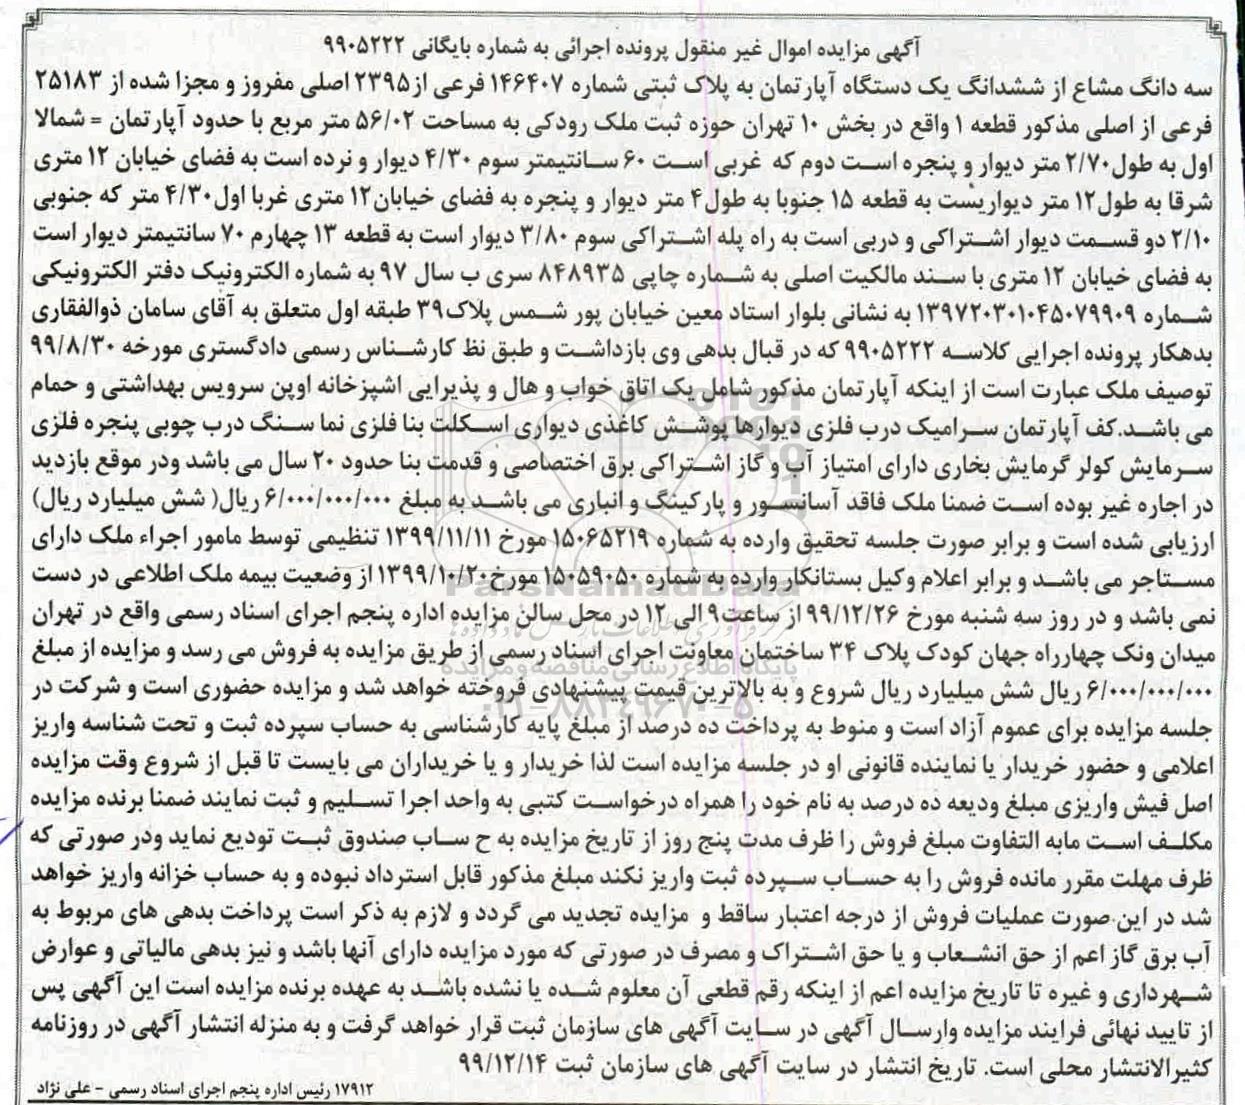 آگهی مزایده اموال غیر منقول پرونده اجرائی به شماره بایگانی ۹۹۰۵۲۲۲
سه دانگ مشاع از ششدانگ یک دستگاه آپارتمان به پلاک ثبتی شماره ۱۴۶۴۰۷ فرعی از۲۳۹۵ اصلی مفروز و مجزا شده از ۲۵۱۸۳
فرعی از اصلی مذکور قطعه ۱ واقع در بخش ۱۰ تهران حوزه ثبت ملک رودکی به مساحت ۵۶/۰۲ متر مربع با حدود آپارتمان = شمالا
اول به طول۲/۷۰ متر دیوار و پنجره است دوم که غربی است ۶۰ سانتیمتر سوم ۴/۳۰ دیوار و نرده است به فضای خیابان ۱۲ متری
شرقا به طول۱۲ متر دیواریست به قطعه ۱۵ جنوبا به طول۴ متر دیوار و پنجره به فضای خیابان۱۲ متری غربا اول۴/۳۰ متر که جنوبی
۲/۱۰ دو قسمت دیوار اشتراکی و دربی است به راه پله اشتراکی سوم ۳/۸۰ دیوار است به قطعه ۱۳ چهارم ۷۰ سانتیمتر دیوار است
به فضای خیابان ۱۲ متری با سند مالکیت اصلی به شماره چاپی ۸۴۸۹۳۵ سری ب سال ۹۷ به شماره الکترونیک دفتر الکترونیکی
شماره ۱۳۹۷۲۰۳۰۱۰۴۵۰۷۹۹۰۹ به نشانی بلوار استاد معین خیابان پور شمس پلاک۳۹ طبقه اول متعلق به آقای سامان ذوالفقاری
بدهکار پرونده اجرایی کلاسه ۹۹۰۵۲۲۲ که در قبال بدهی وی بازداشت و طبق نظ کارشناس رسمی دادگستری مورخه ۹۹/۸/۳۰
توصیف ملک عبارت است از اینکه آپارتمان مذکور شامل یک اتاق خواب و هال و پذیرایی اشپزخانه اوپن سرویس بهداشتی و حمام
می باشد.کف آپارتمان سرامیک درب فلزی دیوارها پوشش کاغذی دیواری اسکلت بنا فلزی نما سنگ درب چوبی پنجره فلزی
سرمایش کولر گرمایش بخاری دارای امتیاز آب و گاز اشتراکی برق اختصاصی و قدمت بنا حدود ۲۰ سال می باشد ودر موقع بازدید
در اجاره غیر بوده است ضمنا ملک فاقد آسانسور و پارکینگ و انباری می باشد به مبلغ ۶/۰۰۰/۰۰۰/۰۰۰ ریال( شش میلیارد ریال)
ارزیابی شده است و برابر صورت جلسه تحقیق وارده به شماره ۱۵۰۶۵۲۱۹ مورخ ۱۳۹۹/۱۱/۱۱ تنظیمی توسط مامور اجراء ملک دارای
مستاجر می باشد و برابر اعلام وکیل بستانکار وارده به شماره ۱۵۰۵۹۰۵۰ مورخ۱۳۹۹/۱۰/۲۰ از وضعیت بیمه ملک اطلاعی در دست
نمی باشد و در روز سه شنبه مورخ ۹۹/۱۲/۲۶ از ساعت۹ الی ۱۲ در محل سالن مزایده اداره پنجم اجرای اسناد رسمی واقع در تهران
میدان ونک چهارراه جهان کودک پلاک ۳۴ ساختمان معاونت اجرای اسناد رسمی از طریق مزایده به فروش می رسد و مزایده از مبلغ
۶/۰۰۰/۰۰۰/۰۰۰ ریال شش میلیارد ریال شروع و به بالاترین قیمت پیشنهادی فروخته خواهد شد و مزایده حضوری است و شرکت در
جلسه مزایده برای عموم آزاد است و منوط به پرداخت ده درصد از مبلغ پایه کارشناسی به حساب سپرده ثبت و تحت شناسه واریز
اعلامی و حضور خریدار یا نماینده قانونی او در جلسه مزایده است لذا خریدار و یا خریداران می بایست تا قبل از شروع وقت مزایده
اصل فیش واریزی مبلغ ودیعه ده درصد به نام خود را همراه درخواست کتبی به واحد اجرا تسلیم و ثبت نمایند ضمنا برنده مزایده
مکلف است مابه التفاوت مبلغ فروش را ظرف مدت پنج روز از تاریخ مزایده به ح ساب صندوق ثبت تودیع نماید ودر صورتی که
ظرف مهلت مقرر مانده فروش را به حساب سپرده ثبت واریز نکند مبلغ مذکور قابل استرداد نبوده و به حساب خزانه واریز خواهد
شد در این صورت عملیات فروش از درجه اعتبار ساقط و مزایده تجدید می گردد و لازم به ذکر است پرداخت بدهی های مربوط به
آب برق گاز اعم از حق انشعاب و یا حق اشتراک و مصرف در صورتی که مورد مزایده دارای آنها باشد و نیز بدهی مالیاتی و عوارض
شهرداری و غیره تا تاریخ مزایده اعم از اینکه رقم قطعی آن معلوم شده یا نشده باشد به عهده برنده مزایده است این آگهی پس
از تایید نهائی فرایند مزایده وارسال آگهی در سایت آگهی های سازمان ثبت قرار خواهد گرفت و به منزله انتشار آگهی در روزنامه
کثیرالانتشار محلی است. تاریخ انتشار در سایت آگهی های سازمان ثبت ۹۹/۱۲/۱۴
۱۷۹۱۲ رئیس اداره پنجم اجرای اسناد رسمی - علی نژاد
ParsNamadData
پایگاه اطلاع رسانی مناقصه و مزایده
۰۲۱-۸۸۳۴۹۶۷۰-۵